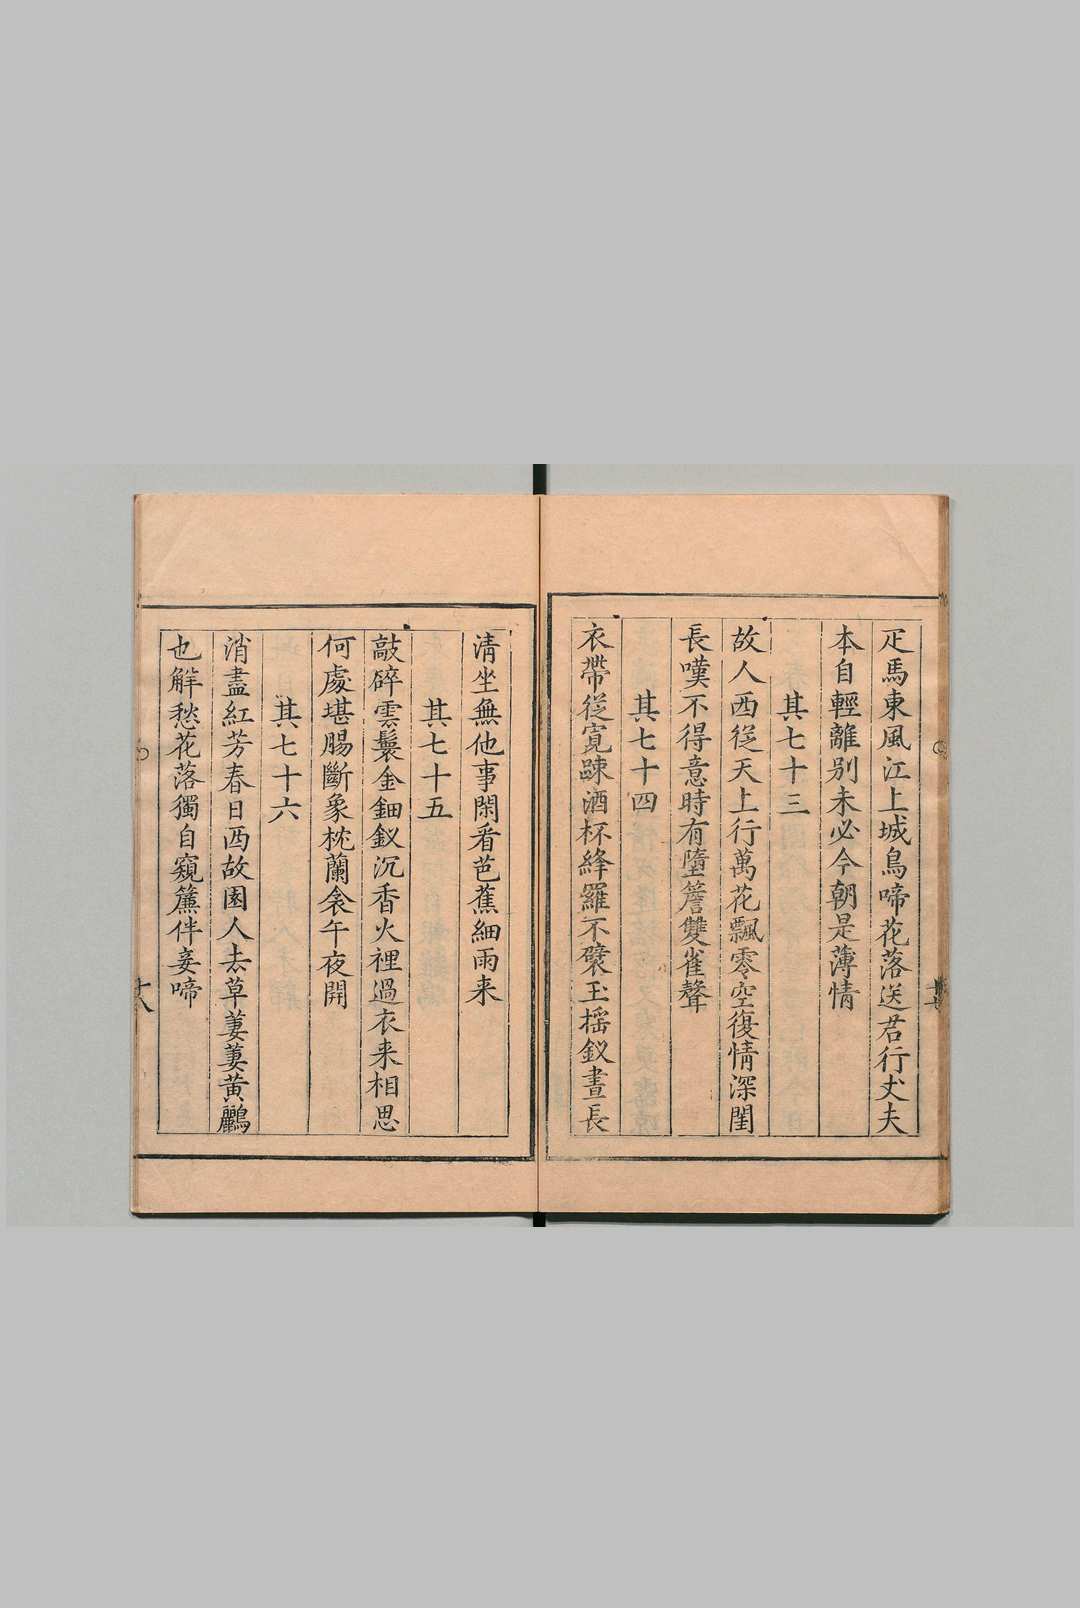 疋馬東風江上城鳥啼花落送君行丈夫
本自輕離别未必今朝是薄情
其七十三
故人西從天上行萬花飄零空復情深閨
長嘆不得意時有墮簷雙雀聲
其七十四
衣帶從寬踈酒杯絳羅不襞玉摇釵晝長
清坐無他事閑看芭蕉細雨来
其七十五
敲碎雲鬟金鈿釵沉香火裡過衣来相思
何處堪腸斷象枕蘭衾午夜開
其七十六
消盡紅芳春日西故園人去草萋萋黄鸝
也解愁花落獨自窺簾伴妾啼
十八